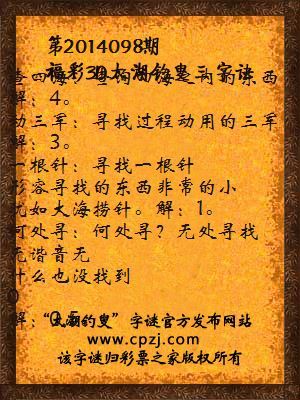 第2014098期
福彩3D太湖钓叟三字诀
查四海：查询四海是询的东西
解：4。
动三军：寻找过程动用的三军
解：3。
一根针：寻找一根针
形容寻找的东西非常的小
犹如大海捞针。解：1。
何处寻：何处寻？无处寻找
无谐音无
什么也没找到
解：0.5。
“太湖钓叟”字谜官方发布网站
www.cpzj.com
该字谜归彩票之家版权所有